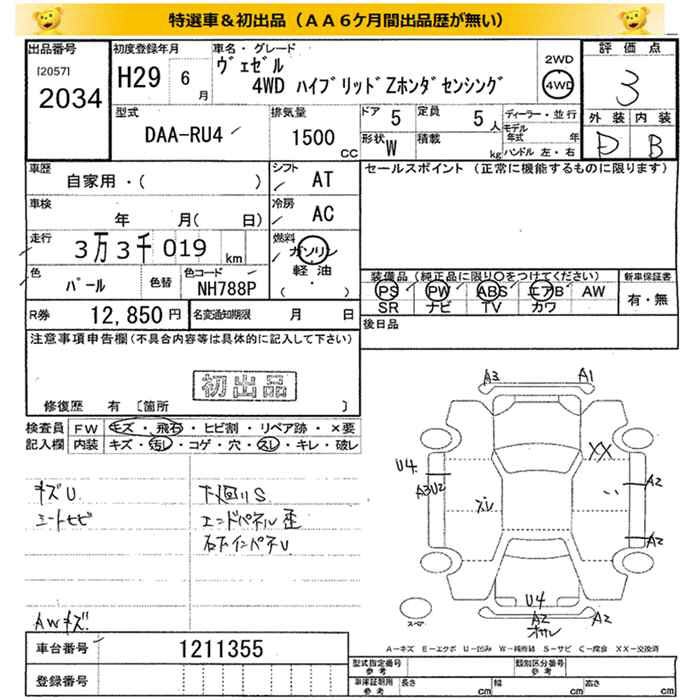 特選車＆初出品（ＡＡ６ケ月間出品歴が無い）
出品番号
[2057]
2034
初度登録年月
H29 6 月
車名・グレード
ヴェゼル
4WD ハイブリッドZホンダセンシング
2WD
4WD
評価点
3
外装 内装
D B
型式
DAA-RU4
排気量
1500 CC
ドア 5
定員 5 人
形状 W
積載 kg
ディーラー・並行
モデル年式 年
ハンドル 左・右
車歴
自家用・( )
シフト AT
車検
年 月( 日)
冷房 AC
走行
3万3千019 km
燃料
ガソリン
軽油
( ・ )
色
パール
色替
色コード
NH788P
R券 12,850 円
名変通知期限 月 日
セールスポイント（正常に機能するものに限ります）
装備品（純正品に限り○をつけてください）
PS PW ABS エアB AW
SR ナビ TV カワ
新車保証書
有・無
後日品
注意事項申告欄（不具合内容等は具体的に記入して下さい）
初出品
修復歴 有 〔箇所 〕
検査員記入欄
FW キズ・飛石・ヒビ割・リペア跡・×要
内装 キズ・汚レ・コゲ・穴・スレ・キレ・破レ
キズU
シートヒビ
AWキズ
下廻りS
エンドパネル歪
右インパネU
A3
A1
XX
U4
A3U2
A2
A2
U4
A2
A2
スペア
A－キズ E－エクボ U－凹み W－補修跡 S－サビ C－腐食 XX－交換済
車台番号 1211355
登録番号
型式指定番号
参考
類別区分番号
参考
車庫証明用
参考
長さ cm
幅 cm
高さ cm